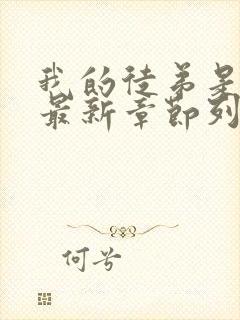 我的徒弟是
最新章节列
何兮